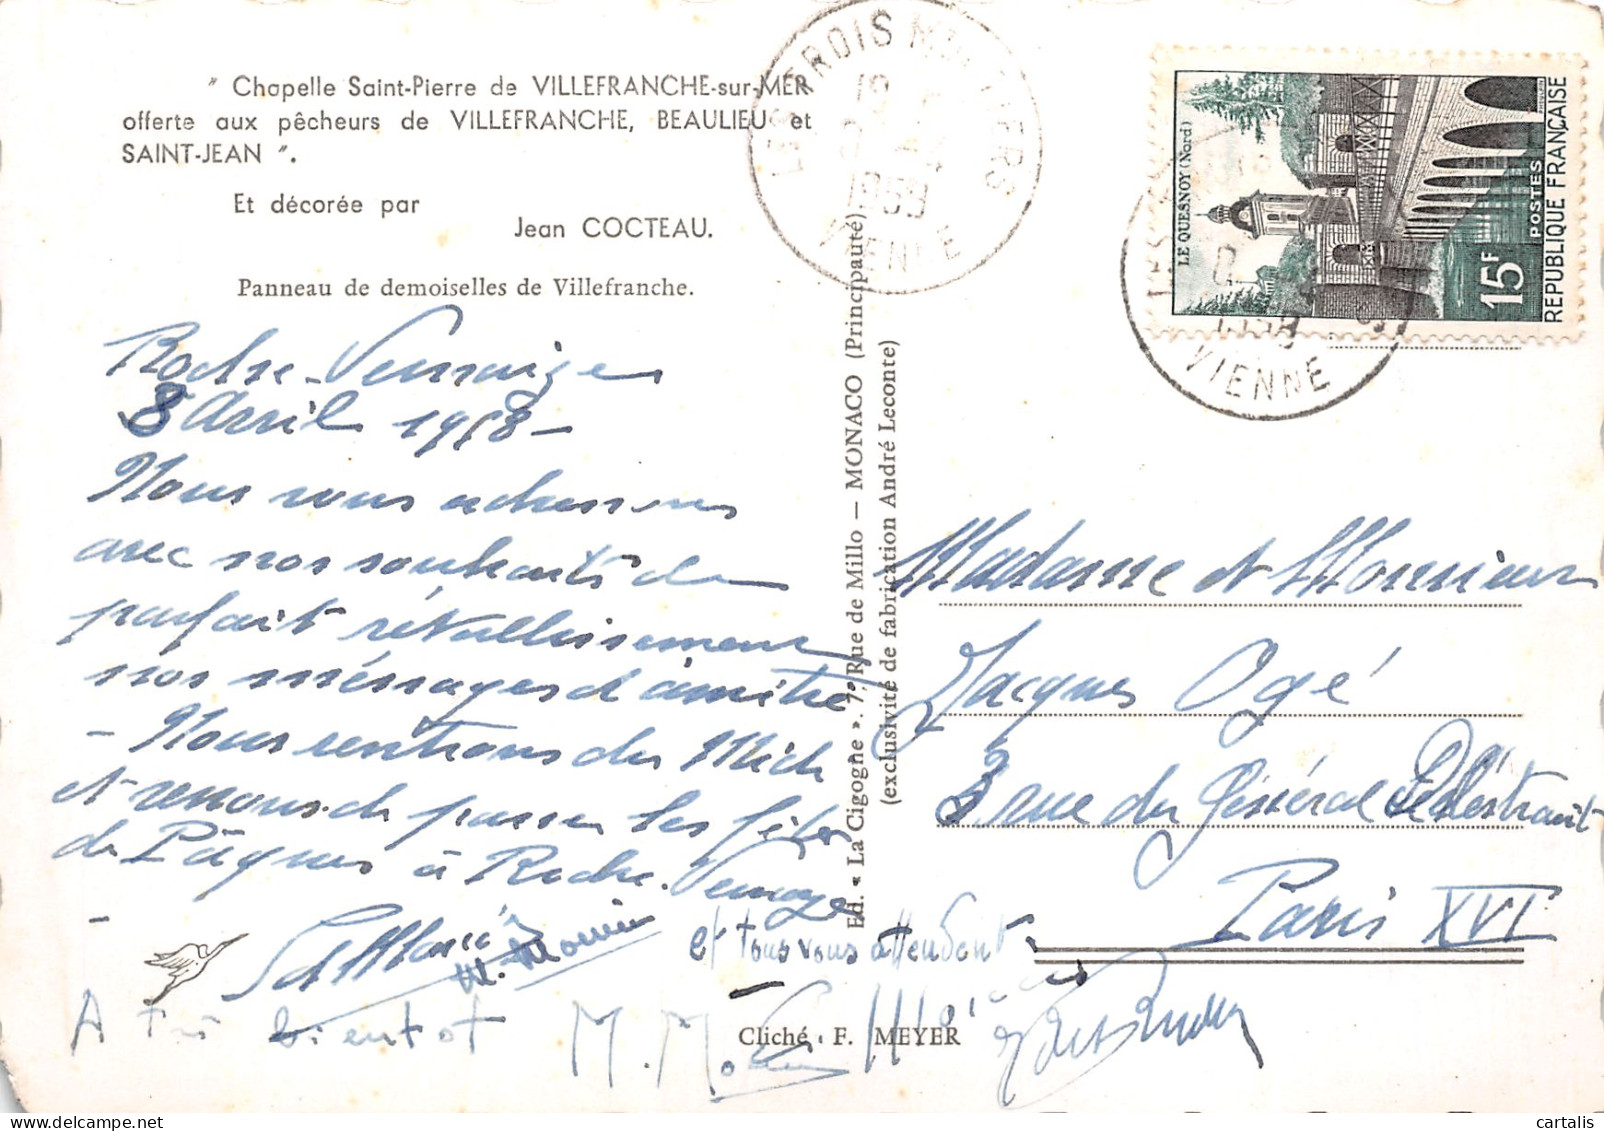 " Chapelle Saint-Pierre de VILLEFRANCHE-sur-MER
offerte aux pêcheurs de VILLEFRANCHE, BEAULIEU et
SAINT-JEAN ".
Et décorée par
Jean COCTEAU.
Panneau de demoiselles de Villefranche.
8 Avril 1958 -
Nous vous adressons
avec nos souhaits de
parfait rétablissement
nos messages d'amitié
- Nous rentrons du Midi
et venons de passer les fêtes
de Pâques à Roche.
et tous vous attendent
A très bientôt
Cliché F. MEYER
Ed. « La Cigogne ». 7, Rue de Millo — MONACO (Principauté)
(exclusivité de fabrication André Leconte)
LES TROIS MOUTIERS
VIENNE
LE QUESNOY (Nord)
15F
POSTES
REPUBLIQUE FRANÇAISE
VIENNE
Madame et Monsieur
Jacques Ogé
3 rue du Général Delestraint
Paris XVI
cartalis.com